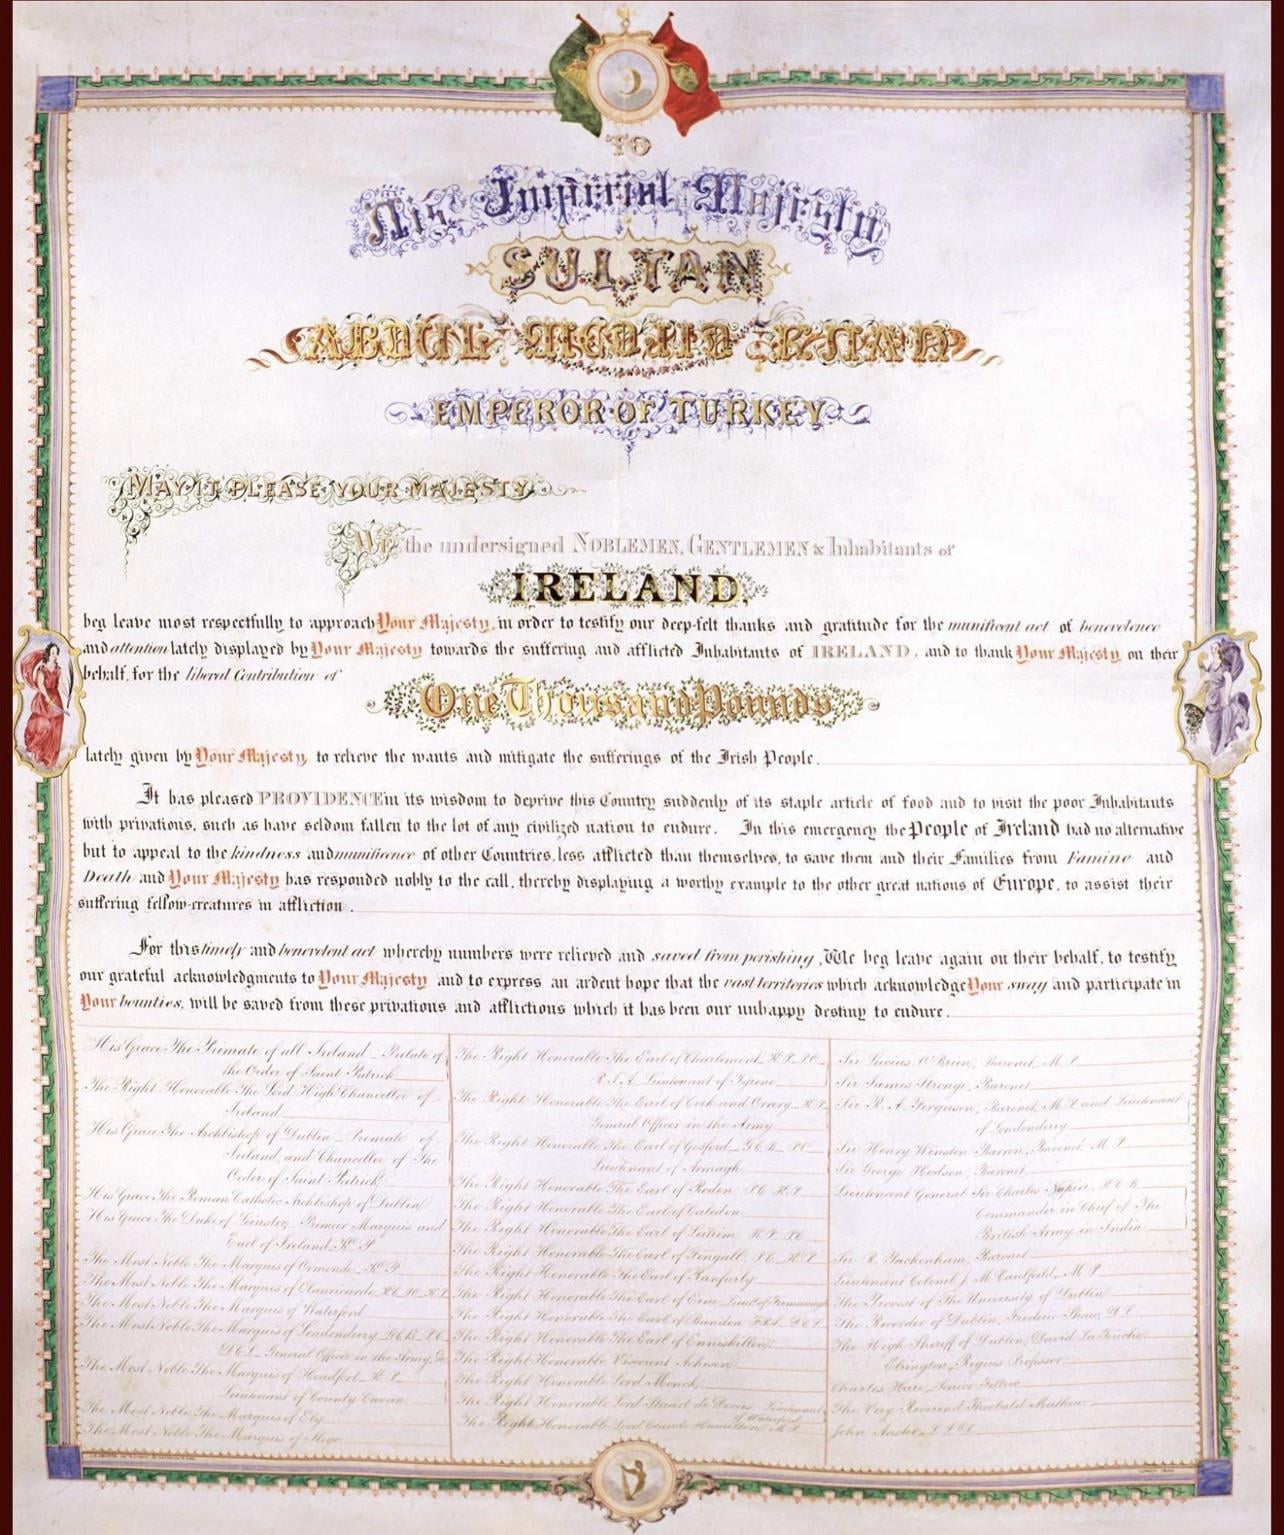 TO
His Imperial Majesty
SULTAN
ABDUL MEDJID KHAN
EMPEROR OF TURKEY
MAY IT PLEASE YOUR MAJESTY
We the undersigned NOBLEMEN, GENTLEMEN & Inhabitants of
IRELAND
beg leave most respectfully to approach Your Majesty, in order to testify our deep-felt thanks and gratitude for the munificent act of benevolence
and attention lately displayed by Your Majesty towards the suffering and afflicted Inhabitants of IRELAND, and to thank Your Majesty on their
behalf, for the liberal Contribution of
One Thousand Pounds
lately given by Your Majesty, to relieve the wants and mitigate the sufferings of the Irish People.
It has pleased PROVIDENCE in its wisdom to deprive this Country suddenly of its staple article of food and to visit the poor Inhabitants
with privations, such as have seldom fallen to the lot of any civilized nation to endure. In this emergency the People of Ireland had no alternative
but to appeal to the kindness and munificence of other Countries, less afflicted than themselves, to save them and their Families from Famine and
Death and Your Majesty has responded nobly to the call, thereby displaying a worthy example to the other great nations of Europe, to assist their
suffering fellow-creatures in affliction.
For this timely and benevolent act whereby numbers were relieved and saved from perishing, We beg leave again on their behalf, to testify
our grateful acknowledgments to Your Majesty and to express an ardent hope that the vast territories which acknowledge Your sway and participate in
Your bounties, will be saved from these privations and afflictions which it has been our unhappy destiny to endure.
His Grace The Primate of all Ireland _ Prelate of
the Order of Saint Patrick
The Right Honorable The Lord High Chancellor of
Ireland
His Grace The Archbishop of Dublin _ Primate of
Ireland, and Chancellor of The
Order of Saint Patrick
His Grace The Roman Catholic Archbishop of Dublin
His Grace The Duke of Leinster, Premier Marquis and
Earl of Ireland K. P.
The Most Noble The Marquis of Ormonde K. P.
The Most Noble The Marquis of Clanricarde
The Most Noble The Marquis of Waterford
The Most Noble The Marquis of Londonderry G.C.B. P.C.
D.C.L. General Officer in the Army &c
The Most Noble The Marquis of Headfort K. P.
Lieutenant of County Cavan
The Most Noble The Marquis of Ely
The Most Noble The Marquis of Sligo
The Right Honorable The Earl of Charlemont K.P. P.C.
Lieutenant of Tyrone
The Right Honorable The Earl of Cork and Orrery K.P.
General Officer in the Army
The Right Honorable The Earl of Gosford G.C.B. P.C.
Lieutenant of Armagh
The Right Honorable The Earl of Roden P.C. K.P.
The Right Honorable The Earl of Caledon
The Right Honorable The Earl of Leitrim K.P. P.C.
The Right Honorable The Earl of Fingall P.C. K.P.
The Right Honorable The Earl of Ranfurly
The Right Honorable The Earl of Erne Lieut. of Fermanagh
The Right Honorable The Earl of Bandon F.R.S. D.C.L.
The Right Honorable The Earl of Enniskillen
The Right Honorable Viscount Acheson
The Right Honorable Lord Monck
The Right Honorable Lord Stuart de Decies Lieutenant
of Waterford
The Right Honorable Lord Claude Hamilton M.P.
Sir Lucius O'Brien, Baronet, M.P.
Sir James Stronge, Baronet
Sir R. A. Ferguson, Baronet, M.P. and Lieutenant
of Londonderry
Sir Henry Winston Barron, Baronet M.P.
Sir George Hodson, Baronet
Lieutenant General Sir Charles Napier, G.C.B.
Commander in Chief of The
British Army in India
Sir R. Packenham, Baronet
Lieutenant Colonel J. M. Caulfeild, M.P.
The Provost of The University of Dublin
The Recorder of Dublin, Frederic Shaw,
The High Sheriff of Dublin, David La Touche
Elrington, Regius Professor
Charles Hare, Senior Fellow
The Very Reverend Theobald Mathew
John Anster L.L.D.